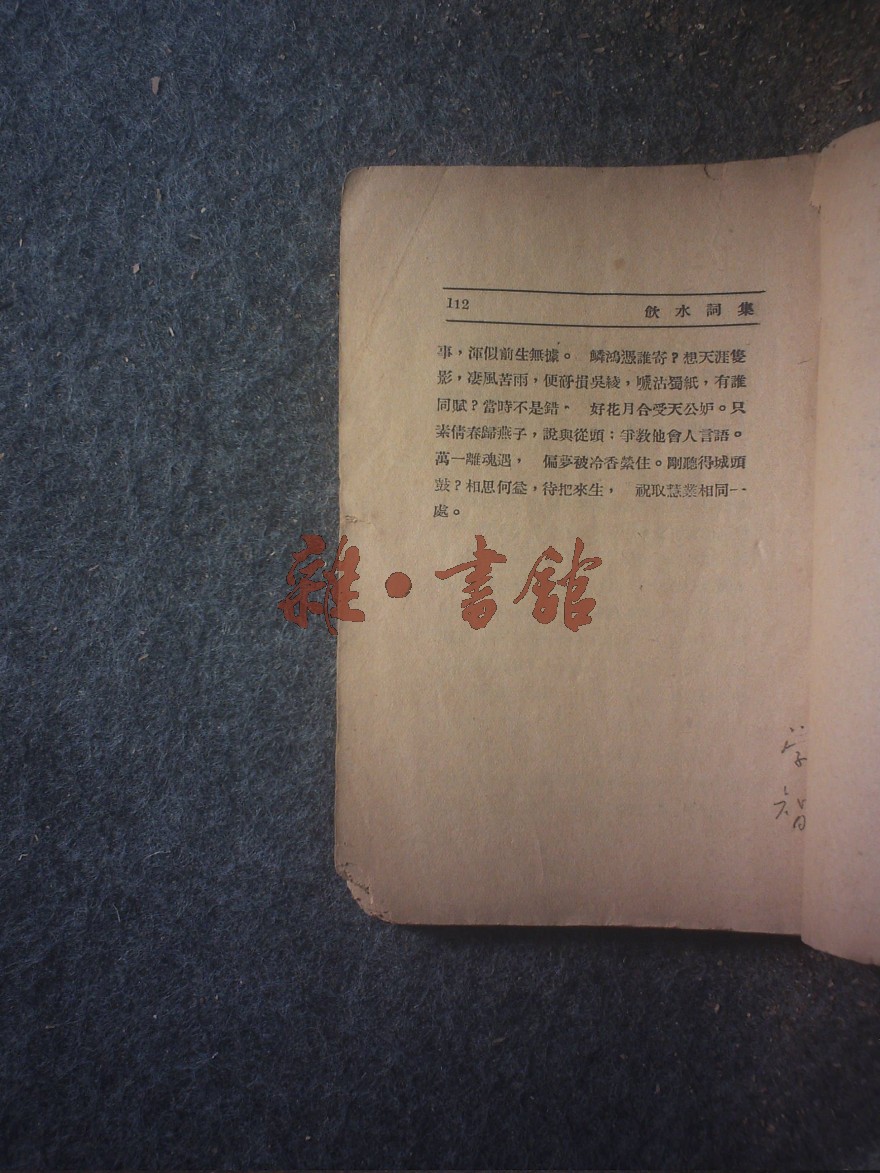 112
飲水詞集
事，渾似前生無據。 鱗鴻憑誰寄？想天涯隻
影，凄風苦雨，便砑損吳綾，啣沾蜀紙，有誰
同賦？當時不是錯， 好花月合受天公妒。只
素倩春歸燕子，說與從頭：爭教他會人言語。
萬一離魂遇， 偏夢被冷香縈住。剛聽得城頭
鼓？相思何益，待把來生， 祝取慧業相同一
處。
雜·書館
学
智